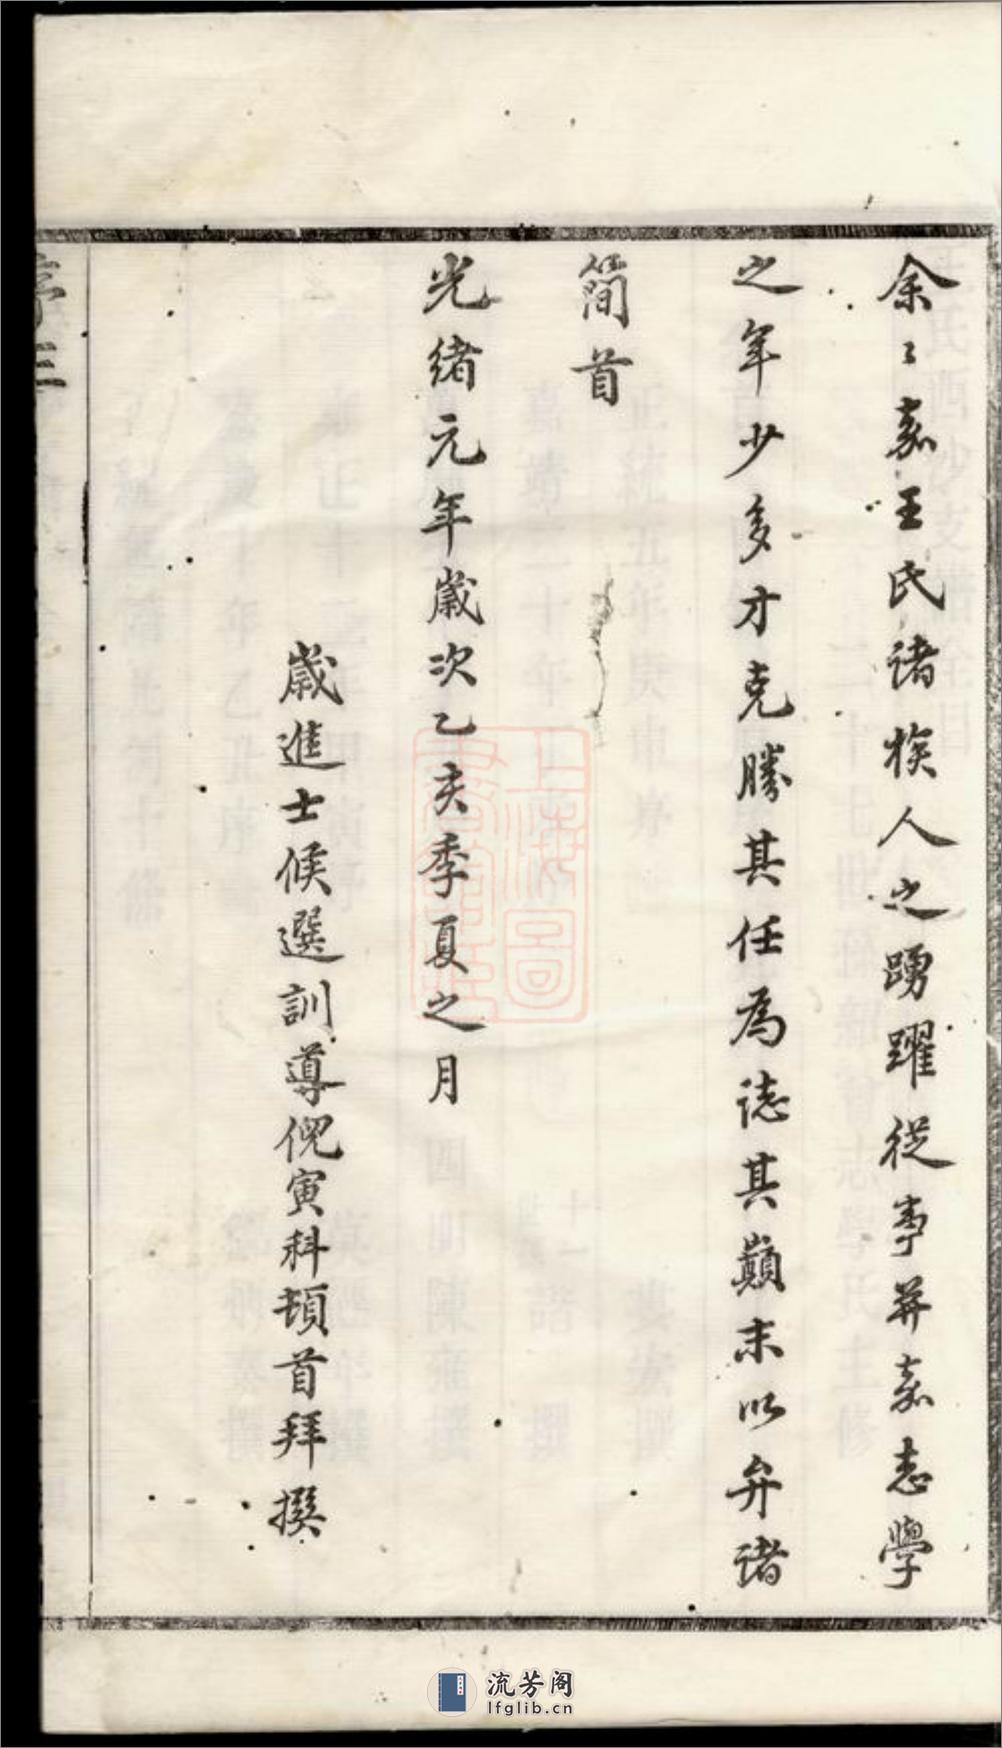 余〻嘉王氏諸族人之踴躍從事并嘉志學
之年少多才克勝其任為誌其巔末以弁諸
簡首
光緒元年歲次乙亥季夏之月
歲進士候選訓導倪寅科頓首拜撰
序三
上海圖
書館藏
流芳阁
lfglib.cn